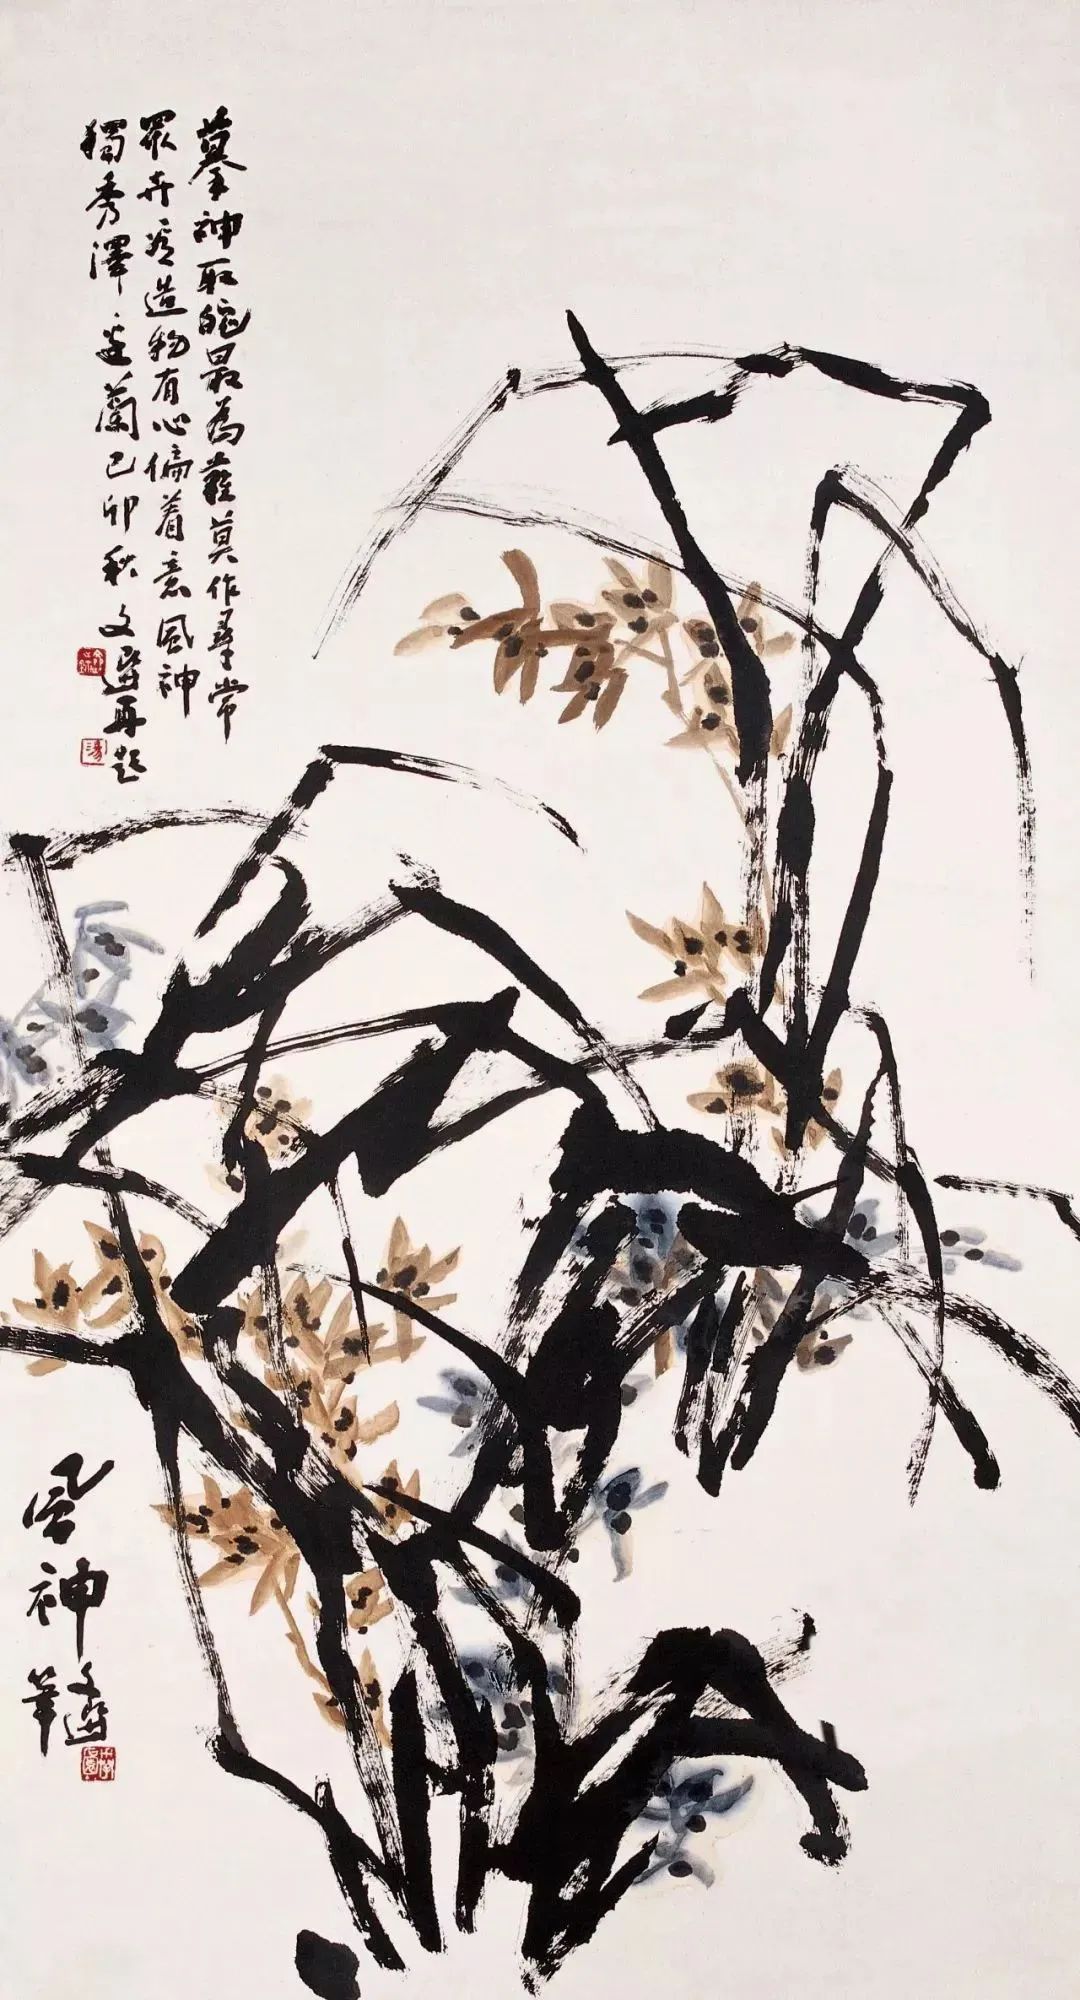 摹神取貌最為難莫作尋常
眾卉看造物有心偏着意風神
獨秀澤邊蘭己卯秋文選再題
風神
文選
筆